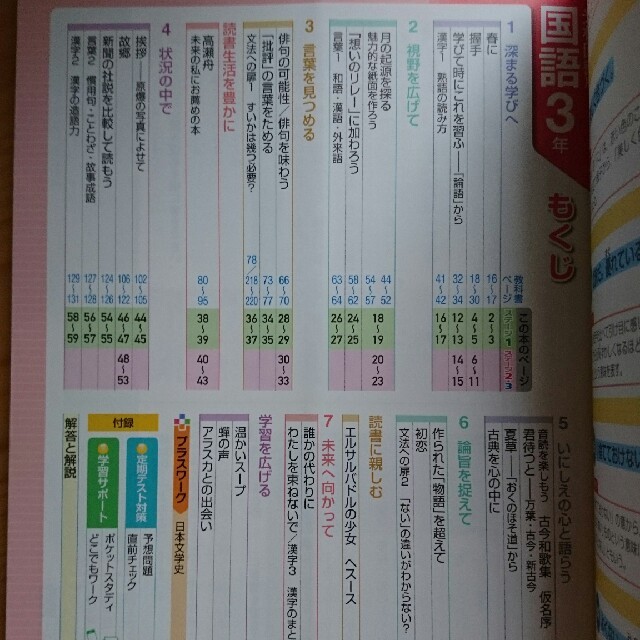 国語3年
もくじ
教科書ページ
この本のページ
ステージ1
ステージ2・3
1 深まる学びへ
春に 16〜17 2〜3
握手 18〜30 4〜5 6〜11
学びて時にこれを習ふ──「論語」から 32〜34 12〜13 14〜15
漢字1 熟語の読み方 41〜42 16〜17
2 視野を広げて
月の起源を探る 44〜52 18〜19 20〜23
魅力的な紙面を作ろう 54〜57
「想いのリレー」に加わろう 58〜62 24〜25
言葉1 和語・漢語・外来語 63〜64 26〜27
3 言葉を見つめる
俳句の可能性/俳句を味わう 66〜70 28〜29 30〜33
「批評」の言葉をためる 73〜77 34〜35
文法への扉1 すいかは幾つ必要? 78/218〜220 36〜37
読書生活を豊かに
高瀬舟 80〜95 38〜39 40〜43
未来の私にお薦めの本
4 状況の中で
挨拶──原爆の写真によせて 102〜105 44〜45
故郷 106〜122 46〜47 48〜53
新聞の社説を比較して読もう 124〜126 54〜55
言葉2 慣用句・ことわざ・故事成語 127〜128 56〜57
漢字2 漢字の造語力 129〜131 58〜59
5 いにしえの心と語らう
音読を楽しもう 古今和歌集 仮名序
君待つと──万葉・古今・新古今
夏草──「おくのほそ道」から
古典を心の中に
6 論旨を捉えて
作られた「物語」を超えて
初恋
文法への扉2 「ない」の違いがわからない?
読書に親しむ
エルサルバドルの少女 ヘスース
7 未来へ向かって
誰かの代わりに
わたしを束ねないで/漢字3 漢字のまと
学習を広げる
温かいスープ
蝉の声
アラスカとの出会い
プラスワーク 日本文学史
付録
定期テスト対策
予想問題
直前チェック
学習サポート
ポケットスタディ
どこでもワーク
解答と解説